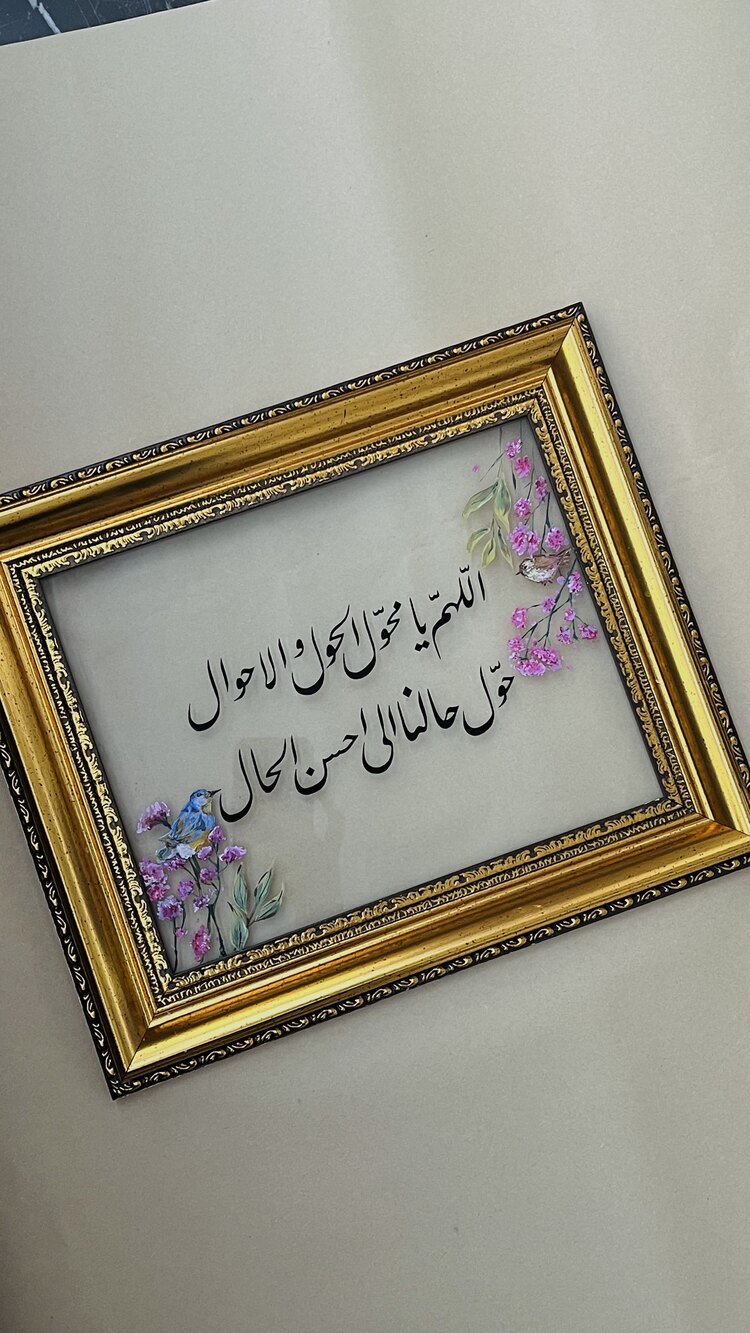 اللّهمّ يا محوّل الحول و الاحوال
حوّل حالنا الى احسن الحال